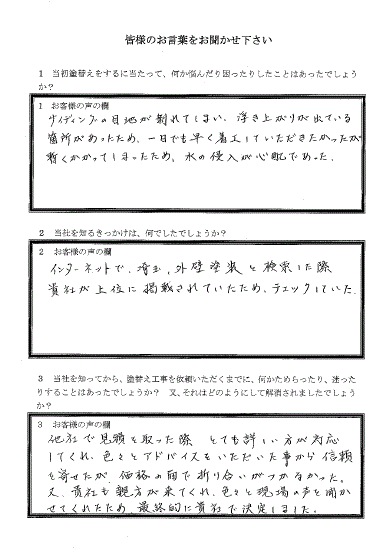 皆様のお言葉をお聞かせ下さい
1 当初塗替えをするに当たって、何か悩んだり困ったりしたことはあったでしょう
か?
1 お客様の声の欄
サイディングの目地が割れてしまい、浮き上がりが出ている
箇所があったため、一日でも早く着工していただきたかったが
暫くかかってしまったため、水の侵入が心配であった。
2 当社を知るきっかけは、何でしたでしょうか?
2 お客様の声の欄
インターネットで、埼玉、外壁塗装と検索した際
貴社が上位に掲載されていたため、チェックしていた。
3 当社を知ってから、塗替え工事を依頼いただくまでに、何かためらったり、迷った
りすることはあったでしょうか? 又、それはどのようにして解消されましたでしょう
か?
3 お客様の声の欄
他社で見積を取った際 とても詳しい方が対応
してくれ、色々とアドバイスをいただいた事から信頼
を寄せたが、価格の面で折り合いがつかなかった。
又、貴社も親方が来てくれ、色々と現場の声を聞か
せてくれたため、最終的に貴社で決定しました。